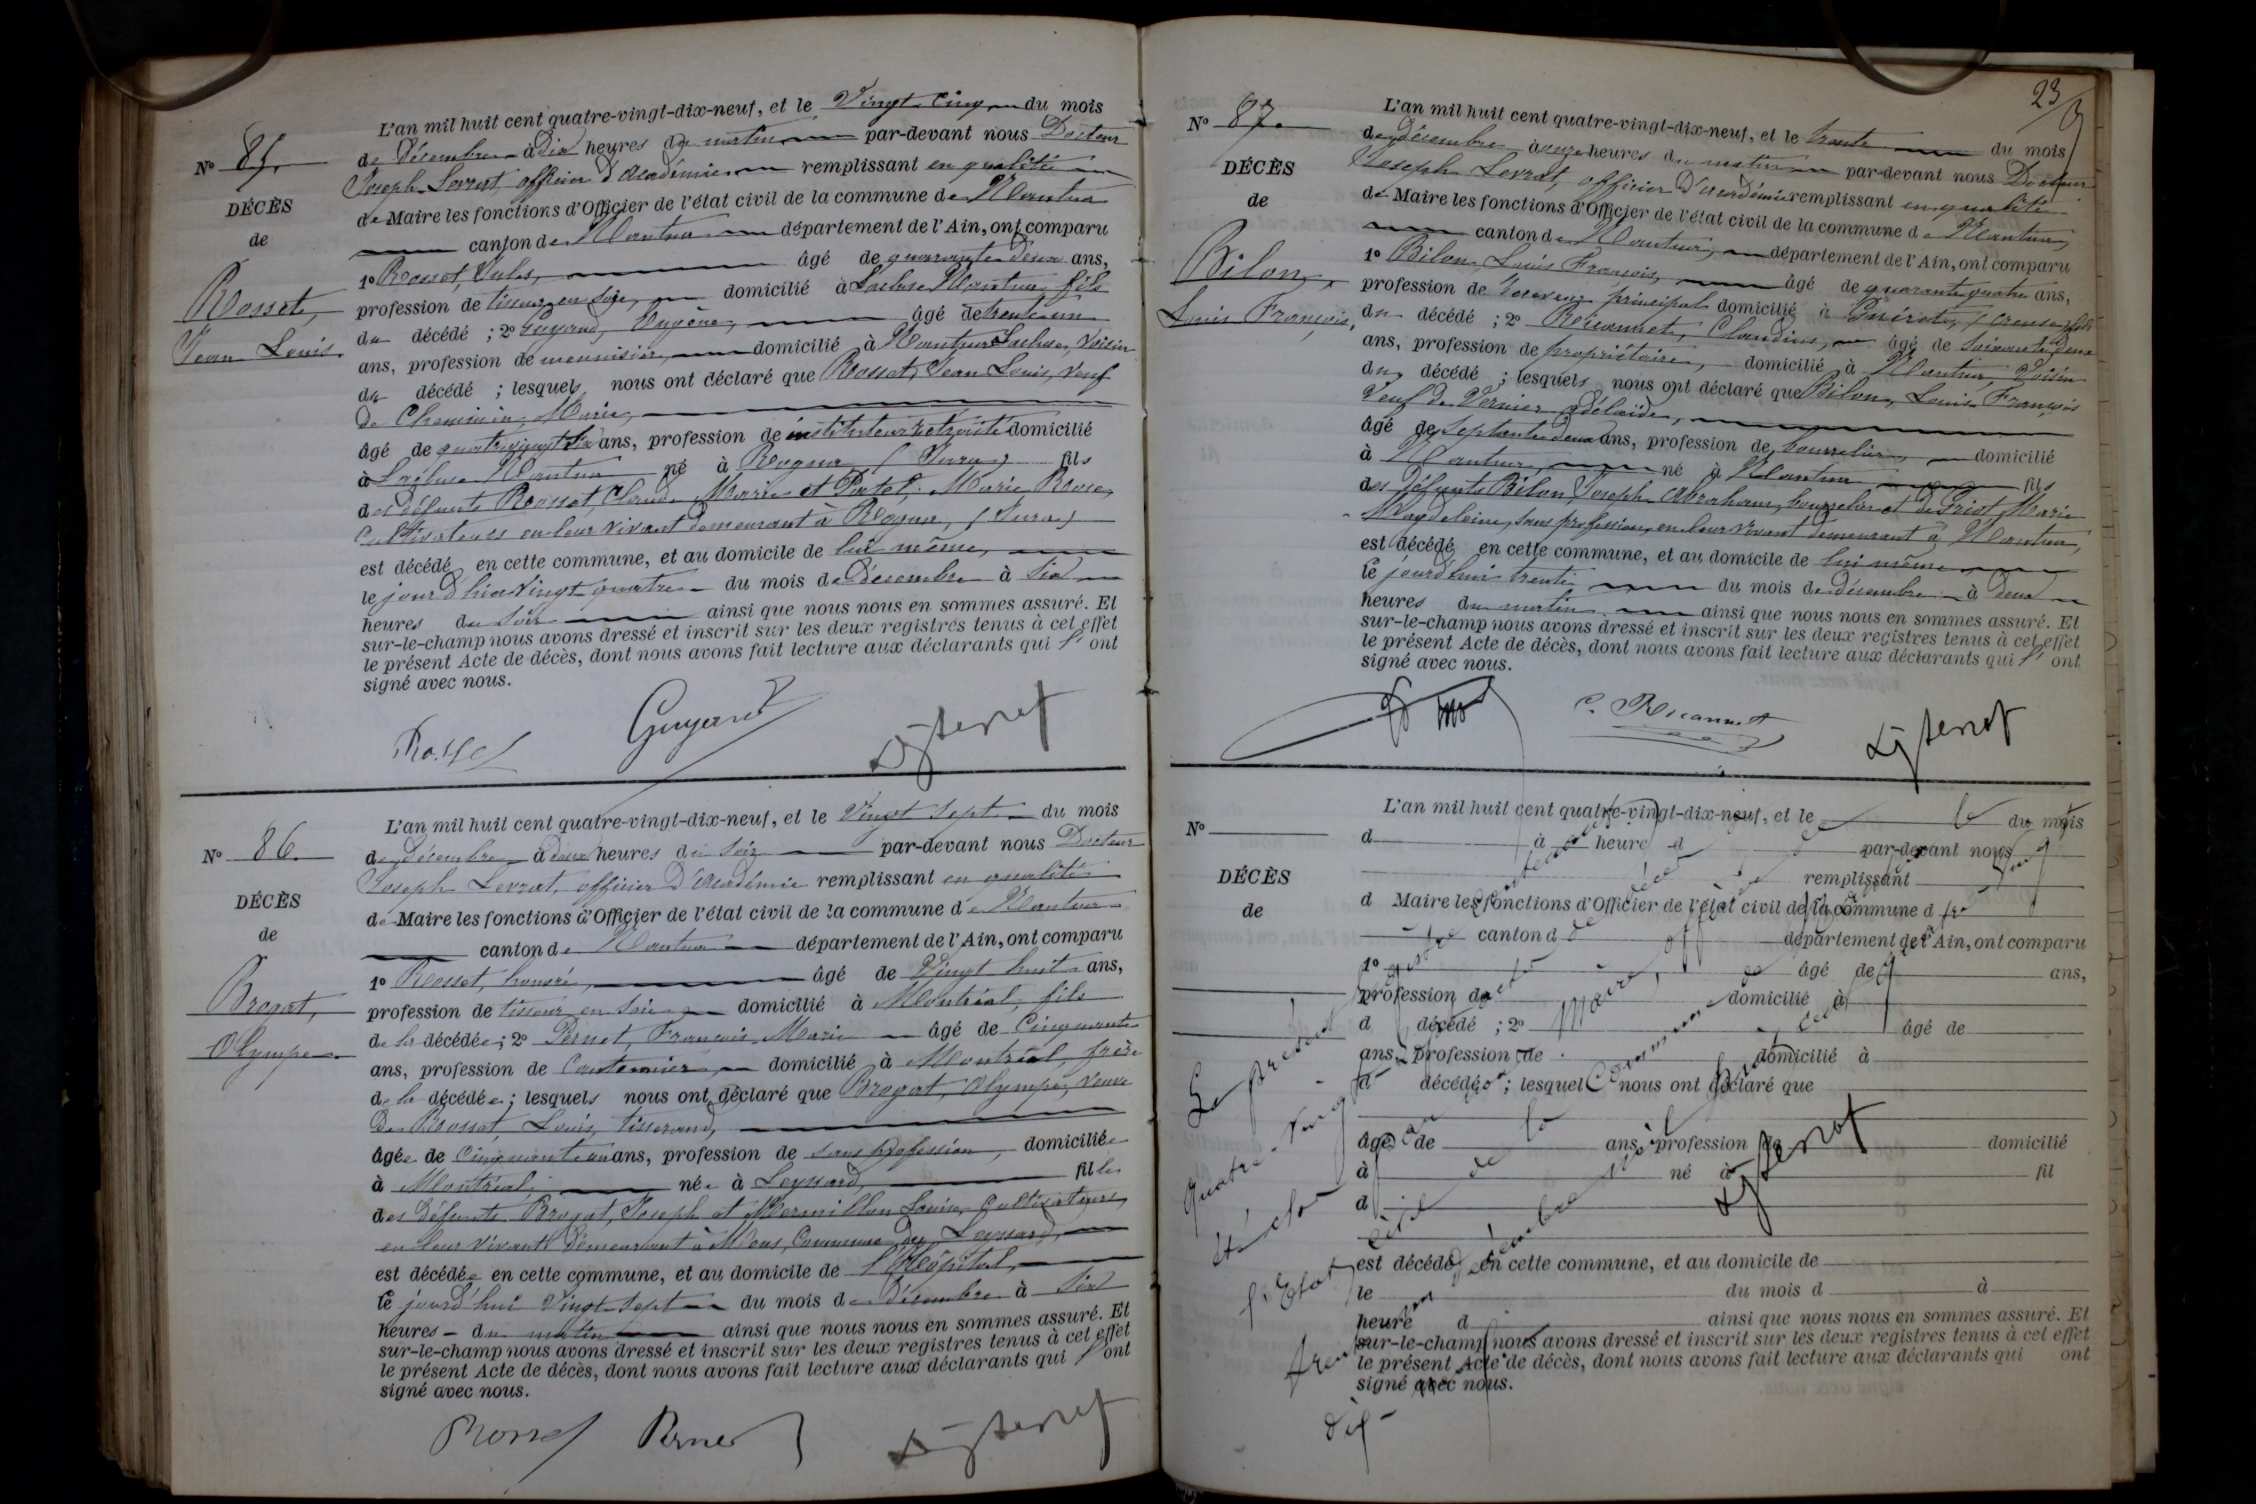 N° 85.
DÉCÈS
de
Rosset,
Jean Louis.
L'an mil huit cent quatre-vingt-dix-neuf, et le Vingt cinq du mois
de Décembre à dix heures du matin par-devant nous Docteur
Joseph Levrat, officier d'Académie remplissant en qualité
de Maire les fonctions d'Officier de l'état civil de la commune de Nantua
canton de Nantua département de l'Ain, ont comparu
1° Rosset, Jules, âgé de quarante deux ans,
profession de tisseur en soie, domicilié à Nantua fils
du décédé ; 2° Guyard, Eugène, âgé de trente un
ans, profession de menuisier, domicilié à Nantua voisin
du décédé ; lesquels nous ont déclaré que Rosset, Jean Louis, veuf
de Marie,
âgé de quatre vingt ans, profession de instituteur retraité domicilié
à Nantua né à Rogna (Jura) fils
des défunts Rosset, Claude Marie et Marie Rose,
Cultivateurs en leur vivant demeurant à Rogna, (Jura)
est décédé en cette commune, et au domicile de lui même,
le jour d'hier vingt quatre du mois de Décembre à six
heures du soir ainsi que nous nous en sommes assuré. Et
sur-le-champ nous avons dressé et inscrit sur les deux registres tenus à cet effet
le présent Acte de décès, dont nous avons fait lecture aux déclarants qui l'ont
signé avec nous.
Rosset Guyard
N° 86.
DÉCÈS
de
Brogat,
Olympe.
L'an mil huit cent quatre-vingt-dix-neuf, et le Vingt sept du mois
de décembre à deux heures du soir par-devant nous Docteur
Joseph Levrat, officier d'Académie remplissant en qualité
de Maire les fonctions d'Officier de l'état civil de la commune de Nantua
canton de Nantua département de l'Ain, ont comparu
1° Rosset, âgé de Vingt huit ans,
profession de tisseur en soie domicilié à Montréal, fils
de la décédée ; 2° Pernet, François Marie âgé de Cinquante
ans, profession de Cantonnier domicilié à Montréal, frère
de la décédée ; lesquels nous ont déclaré que Brogat, Olympe, veuve
De Rosset, Louis, tisserand,
âgée de cinquante un ans, profession de sans profession, domiciliée
à Montréal née à Leyssard, fille
des défunts Brogat, Joseph et Louise, Cultivateurs,
en leur vivant demeurant à Commune de Leyssard,
est décédée en cette commune, et au domicile de l'Hôpital,
le jourd'hui Vingt sept du mois de Décembre à six
heures du matin ainsi que nous nous en sommes assuré. Et
sur-le-champ nous avons dressé et inscrit sur les deux registres tenus à cet effet
le présent Acte de décès, dont nous avons fait lecture aux déclarants qui l'ont
signé avec nous.
Rosset Pernet
23
N° 87.
DÉCÈS
de
Bilon,
Louis François,
L'an mil huit cent quatre-vingt-dix-neuf, et le trente du mois
de décembre à onze heures du matin par-devant nous Docteur
Joseph Levrat, officier d'Académie remplissant en qualité
de Maire les fonctions d'Officier de l'état civil de la commune de Nantua,
canton de Nantua, département de l'Ain, ont comparu
1° Bilon Louis François, âgé de quarante quatre ans,
profession de receveur principal domicilié à Guéret, (Creuse) fils
du décédé ; 2° Claudius, âgé de soixante deux
ans, profession de propriétaire, domicilié à Nantua, Voisin
du décédé ; lesquels nous ont déclaré que Bilon, Louis François
Veuf de Vernier Adélaïde,
âgé de septante deux ans, profession de bourrelier, domicilié
à Nantua, né à Nantua fils
des défunts Bilon, Joseph Abraham, bourrelier et de Friot, Marie
Magdeleine, sans profession, en leur vivant demeurant à Nantua,
est décédé en cette commune, et au domicile de lui même
le jourd'hui trente du mois de décembre à deux
heures du matin ainsi que nous nous en sommes assuré. Et
sur-le-champ nous avons dressé et inscrit sur les deux registres tenus à cet effet
le présent Acte de décès, dont nous avons fait lecture aux déclarants qui l'ont
signé avec nous.
N°
DÉCÈS
de
L'an mil huit cent quatre-vingt-dix-neuf, et le du mois
d à heure d par-devant nous
remplissant
d Maire les fonctions d'Officier de l'état civil de la commune d
canton d département de l'Ain, ont comparu
1° âgé de ans,
profession de domicilié à
d décédé ; 2° âgé de
ans, profession de domicilié à
d décédé ; lesquel nous ont déclaré que
âgé de ans, profession de domicilié
à né à fil
d
est décédé en cette commune, et au domicile de
le du mois d à
heure d ainsi que nous nous en sommes assuré. Et
sur-le-champ nous avons dressé et inscrit sur les deux registres tenus à cet effet
le présent Acte de décès, dont nous avons fait lecture aux déclarants qui ont
signé avec nous.
Le présent registre contenant
quatre-vingt sept actes de décès a
été clos par Maire, officier de
l'Etat civil de la Commune de
trente un décembre mil huit cent